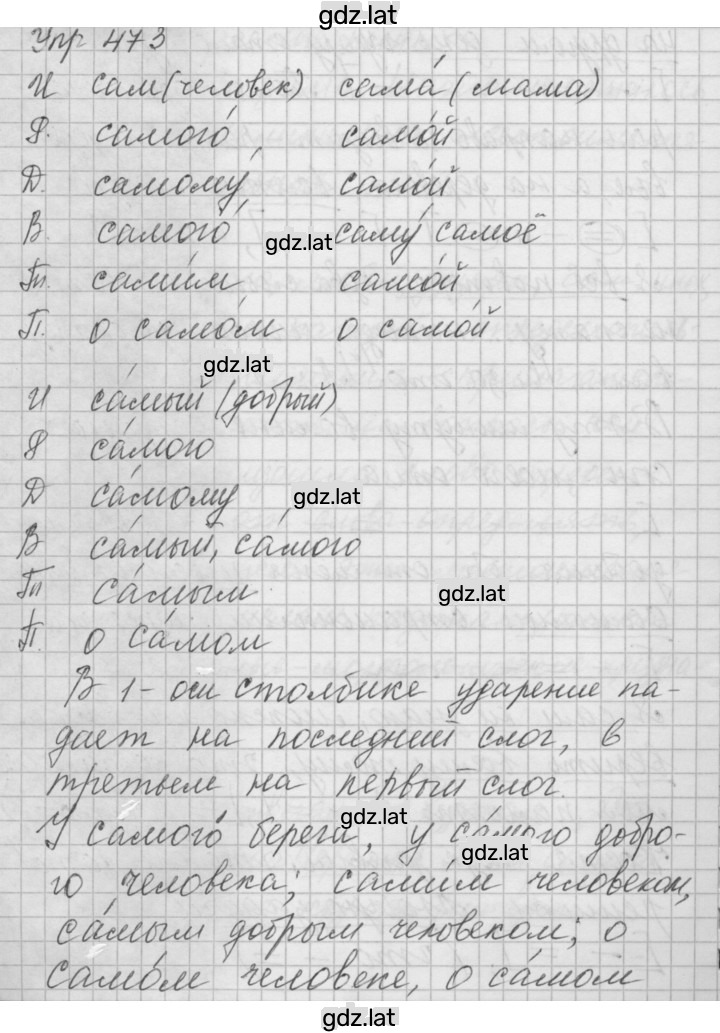 gdz.lat
Упр 473
И сам (человек) сама́ (мама)
Р. самого́, само́й
Д. самому́ само́й
В. самого́ саму́ самоё
gdz.lat
Тп. сами́м само́й
П. о само́м о само́й
gdz.lat
И са́мый (добрый)
Р са́мого
Д са́мому
gdz.lat
В са́мый, са́мого
Тп са́мым
gdz.lat
П. о са́мом
В 1-ом столбике ударение па-
дает на последний слог, в
третьем на первый слог.
gdz.lat
У самого́ берега, у са́мого добро-
gdz.lat
го человека; сами́м человеком,
са́мым добрым человеком; о
само́м человеке, о са́мом
gdz.lat